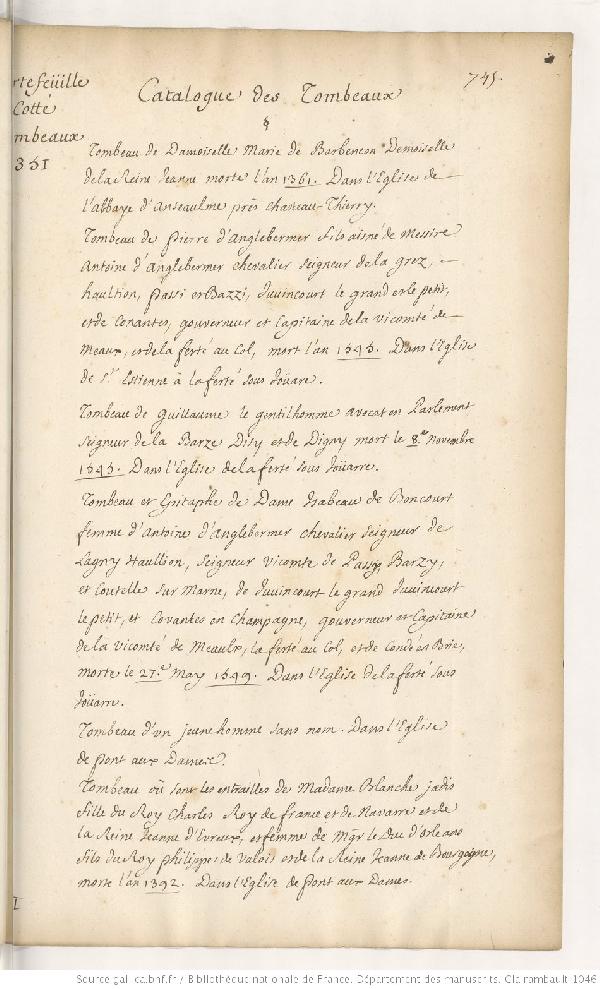 rtefeüille
Cotté
mbeaux
1351
745.
Catalogue des Tombeaux
§
Tombeau de Damoiselle Marie de Barbencon Demoiselle
de la Reine Jeanne morte l'an 1361. Dans l'Eglise de
l'abbaye d'Anseaulme près Chateau-Thierry.
Tombeau de pierre d'Anglebermer fils aisné de Messire
Antoine d'Anglebermer chevalier seigneur de la grez,
haultion, passi et Bazzi, Juvincourt le grand et le petit,
et de Conantes, gouverneur et Capitaine de la vicomté de
Meaux, et de la ferté au Col, mort l'an 1543. Dans l'Eglise
de St. Estienne à la ferté sous Joüare.
Tombeau de Guillaume le gentilhomme avocat en Parlement
seigneur de la Barze Disy et de Digny mort le 8.e Novembre
1545. Dans l'Eglise de la ferté sous Joüarre.
Tombeau et Epitaphe de Dame Isabeau de Boncourt
femme d'Antoine d'Anglebermer chevalier seigneur de
Lagny Haullion, seigneur vicomte de Passy Barzy,
et Coutelle sur Marne, de Juvincourt le grand Juvincourt
le petit, et Covantes en Champagne, gouverneur et Capitaine
de la vicomté de Meaulx, la ferté au Col, et de Condé en Brie,
morte le 27.e May 1549. Dans l'Eglise de la ferté sous
Joüarre.
Tombeau d'un jeune homme sans nom. Dans l'Eglise
de Pont aux Dames.
Tombeau où sont les entrailles de Madame Blanche jadis
fille du Roy Charles Roy de france et de Navarre et de
la Reine Jeanne d'Evreux, et femme de Mgr le Duc d'orleans
fils du Roy philippe de Valois et de la Reine Jeanne de Bourgogne,
morte l'an 1392. Dans l'Eglise de pont aux Dames.
Source gallica.bnf.fr / Bibliothèque nationale de France. Département des manuscrits. Clairambault 1046